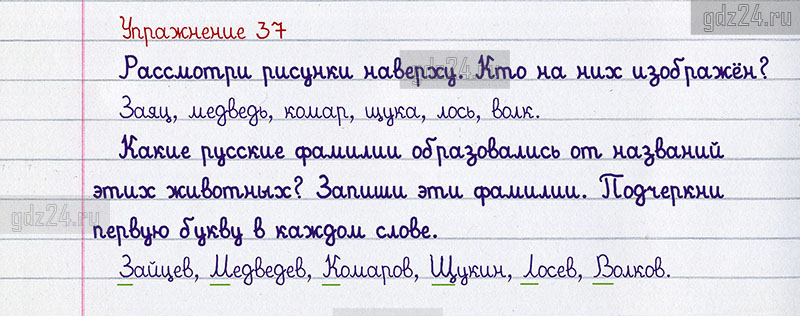 gdz24.ru
Упражнение 37
Рассмотри рисунки наверху. Кто на них изображён?
gdz24.ru
Заяц, медведь, комар, щука, лось, волк.
Какие русские фамилии образовались от названий
этих животных? Запиши эти фамилии. Подчеркни
gdz24.ru
первую букву в каждом слове.
Зайцев, Медведев, Комаров, Щукин, Лосев, Волков.